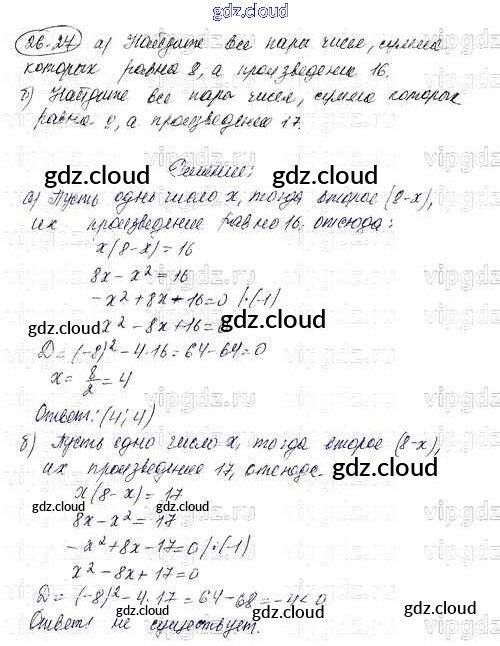 gdz.cloud
26.27 а) Найдите все пары чисел, сумма
которых равна 8, а произведение 16.
б) Найдите все пары чисел, сумма которых
равна 8, а произведение 17.
Решение:
а) Пусть одно число x, тогда второе (8-x),
их произведение равно 16, отсюда:
x(8-x)=16
8x-x²=16
-x²+8x-16=0 |·(-1)
x²-8x+16=0
D=(-8)²-4·16=64-64=0
x=8/2=4
Ответ: (4; 4)
б) Пусть одно число x, тогда второе (8-x),
их произведение 17, отсюда:
x(8-x)=17
8x-x²=17
-x²+8x-17=0 |·(-1)
x²-8x+17=0
D=(-8)²-4·17=64-68=-4<0
Ответ: не существует.
gdz.cloud
gdz.cloud
gdz.cloud
gdz.cloud
gdz.cloud
gdz.cloud
gdz.cloud
gdz.cloud
vipgdz.ru